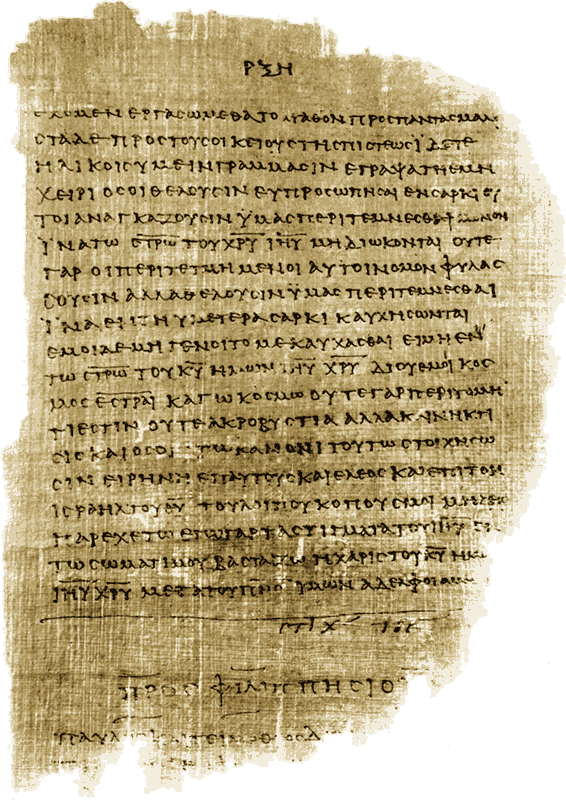 ΡΞΗ
ΕΧΟΜΕΝ ΕΡΓΑϹΩΜΕΘΑ ΤΟ ΑΓΑΘΟΝ ΠΡΟϹ ΠΑΝΤΑϹ ΜΑΛΙ
ϹΤΑ ΔΕ ΠΡΟϹ ΤΟΥϹ ΟΙΚΕΙΟΥϹ ΤΗϹ ΠΙϹΤΕΩϹ ΪΔΕΤΕ
ΗΛΙΚΟΙϹ ΥΜΕΙΝ ΓΡΑΜΜΑϹΙΝ ΕΓΡΑΨΑ ΤΗ ΕΜΗ
ΧΕΙΡΙ ΟϹΟΙ ΘΕΛΟΥϹΙΝ ΕΥΠΡΟϹΩΠΗϹΑΙ ΕΝ ϹΑΡΚΙ ΟΥ
ΤΟΙ ΑΝΑΓΚΑΖΟΥϹΙΝ ΫΜΑϹ ΠΕΡΙΤΕΜΝΕϹΘΑΙ ΜΟΝΟΝ
ΪΝΑ ΤΩ Ϲ̅Τ̅Ρ̅Ω̅ ΤΟΥ Χ̅Ρ̅Υ̅ Ι̅Η̅Υ̅ ΜΗ ΔΙΩΚΟΝΤΑΙ ΟΥΤΕ
ΓΑΡ ΟΙ ΠΕΡΙΤΕΤΜΗΜΕΝΟΙ ΑΥΤΟΙ ΝΟΜΟΝ ΦΥΛΑϹ
ϹΟΥϹΙΝ ΑΛΛΑ ΘΕΛΟΥϹΙΝ ΫΜΑϹ ΠΕΡΙΤΕΜΝΕϹΘΑΙ
ΪΝΑ ΕΝ ΤΗ ΥΜΕΤΕΡΑ ϹΑΡΚΙ ΚΑΥΧΗϹΩΝΤΑΙ
ΕΜΟΙ ΔΕ ΜΗ ΓΕΝΟΙΤΟ ΜΕ ΚΑΥΧΑϹΘΑΙ ΕΙ ΜΗ ΕΝ
ΤΩ Ϲ̅Τ̅Ρ̅Ω̅ ΤΟΥ Κ̅Υ̅ ΗΜΩΝ Ι̅Η̅Υ̅ Χ̅Ρ̅Υ̅ ΔΙ ΟΥ ΕΜΟΙ ΚΟϹ
ΜΟϹ Ε̅Ϲ̅Τ̅Ρ̅Α̅Ι̅ ΚΑΓΩ ΚΟϹΜΩ ΟΥΤΕ ΓΑΡ ΠΕΡΙΤΟΜΗ
ΤΙ ΕϹΤΙΝ ΟΥΤΕ ΑΚΡΟΒΥϹΤΙΑ ΑΛΛΑ ΚΑΙΝΗ ΚΤΙ
ϹΙϹ ΚΑΙ ΟϹΟΙ ΤΩ ΚΑΝΟΝΙ ΤΟΥΤΩ ϹΤΟΙΧΗϹΩ
ϹΙΝ ΕΙΡΗΝΗ ΕΠ ΑΥΤΟΥϹ ΚΑΙ ΕΛΕΟϹ ΚΑΙ ΕΠΙ ΤΟΝ
ΙϹΡΑΗΛ ΤΟΥ Θ̅Υ̅ ΤΟΥ ΛΟΙΠΟΥ ΚΟΠΟΥϹ ΜΟΙ ΜΗΔΕΙϹ
ΠΑΡΕΧΕΤΩ ΕΓΩ ΓΑΡ ΤΑ ϹΤΙΓΜΑΤΑ ΤΟΥ Ι̅Η̅Υ̅ ΕΝ
ΤΩ ϹΩΜΑΤΙ ΜΟΥ ΒΑϹΤΑΖΩ Η ΧΑΡΙϹ ΤΟΥ Κ̅Υ̅ ΗΜΩ
Ι̅Η̅Υ̅ Χ̅Ρ̅Υ̅ ΜΕΤΑ ΤΟΥ Π̅Ν̅Ϲ̅ ΥΜΩΝ ΑΔΕΛΦΟΙ ΑΜΗΝ
ϹΤΙΧ
ΠΡΟϹ ΦΙΛΙΠΠΗϹΙΟΥ
ΠΑΥΛΟϹ ΚΑΙ ΤΕΙΜΟΘΕΟϹ Δ